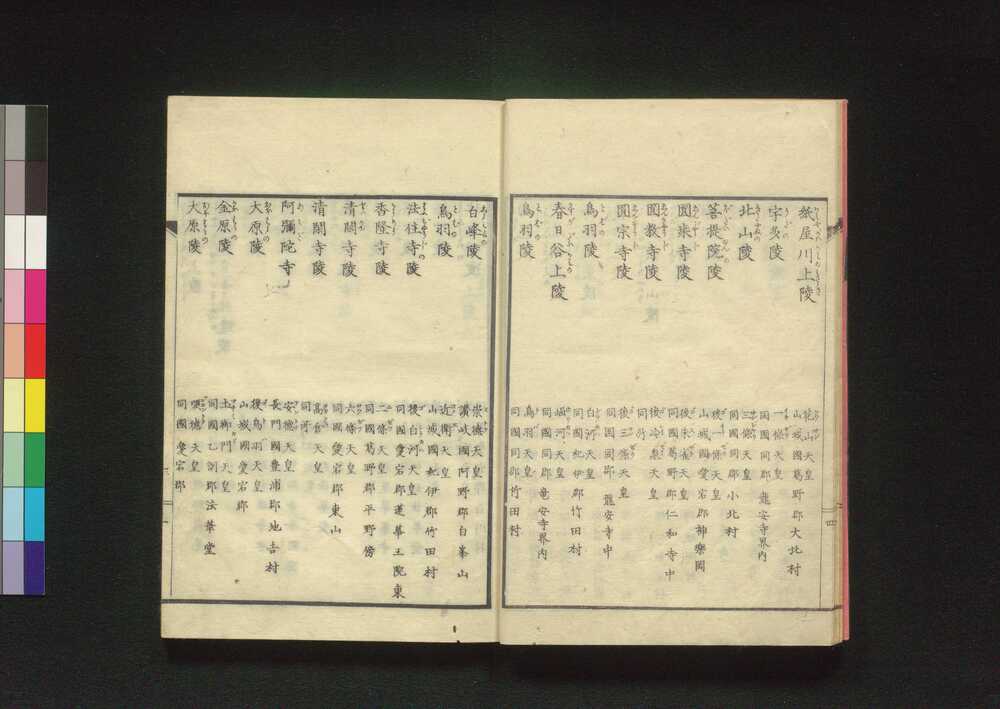 紙屋川上陵
花山天皇
山城國葛野郡大北村
宇多陵
一條天皇
同國同郡 龍安寺界内
北山陵
三條天皇
同國同郡小北村
菩提院陵
後一條天皇
山城國愛宕郡神樂岡
圓乘寺陵
後朱雀天皇
同國葛野郡仁和寺中
圓教寺陵
後冷泉天皇
同所
圓宗寺陵
後三條天皇
同國同郡 龍安寺中
鳥羽陵
白河天皇
同國紀伊郡竹田村
春日谷上陵
堀河天皇
同國同郡 竜安寺界内
鳥羽陵
鳥羽天皇
同國同郡竹田村
四
白峰陵
崇德天皇
讃岐國阿野郡白峯山
鳥羽陵
近衞天皇
山城國紀伊郡竹田村
法住寺陵
後白河天皇
同國愛宕郡蓮華王院東
香隆寺陵
二條天皇
同國葛野郡平野傍
清閑寺陵
六條天皇
同國愛宕郡東山
清閑寺陵
高倉天皇
同所
阿彌陀寺
安德天皇
長門國豊浦郡地吉村
大原陵
後鳥羽天皇
山城國愛宕郡
金原陵
土御門天皇
同國乙訓郡法華堂
大原陵
順德天皇
同國愛宕郡